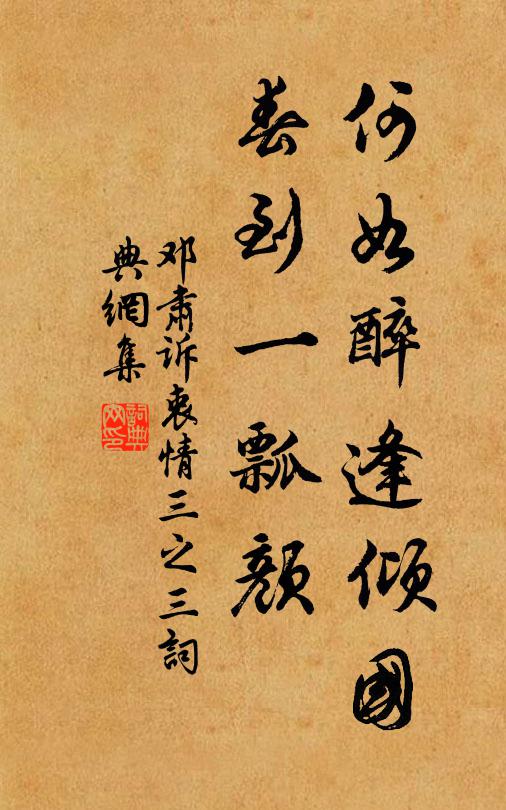 何如醉逢倾國
春到一瓢颜
邓肃诉衷情三之三詞
典網集
詞典網印